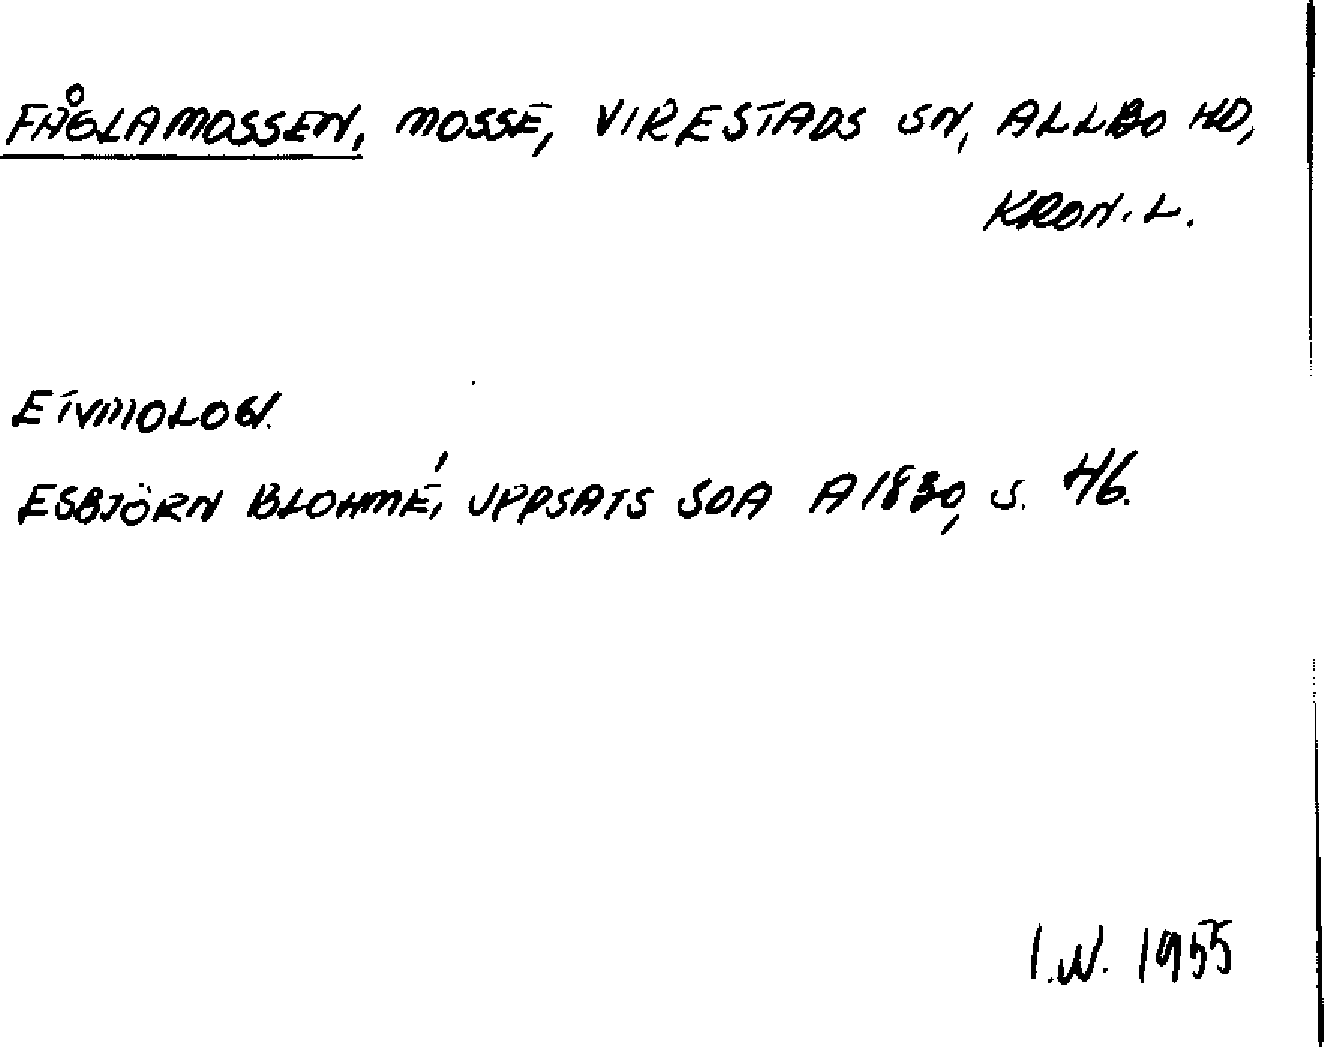 FÅGLAMOSSEN, MOSSE, VIRESTADS SN, ALLBO HD,
KRON. L.
ETYMOLOGI.
ESBJÖRN BLOHMÉ, UPPSATS SOA A 1830, S. 46.
I.N. 1955